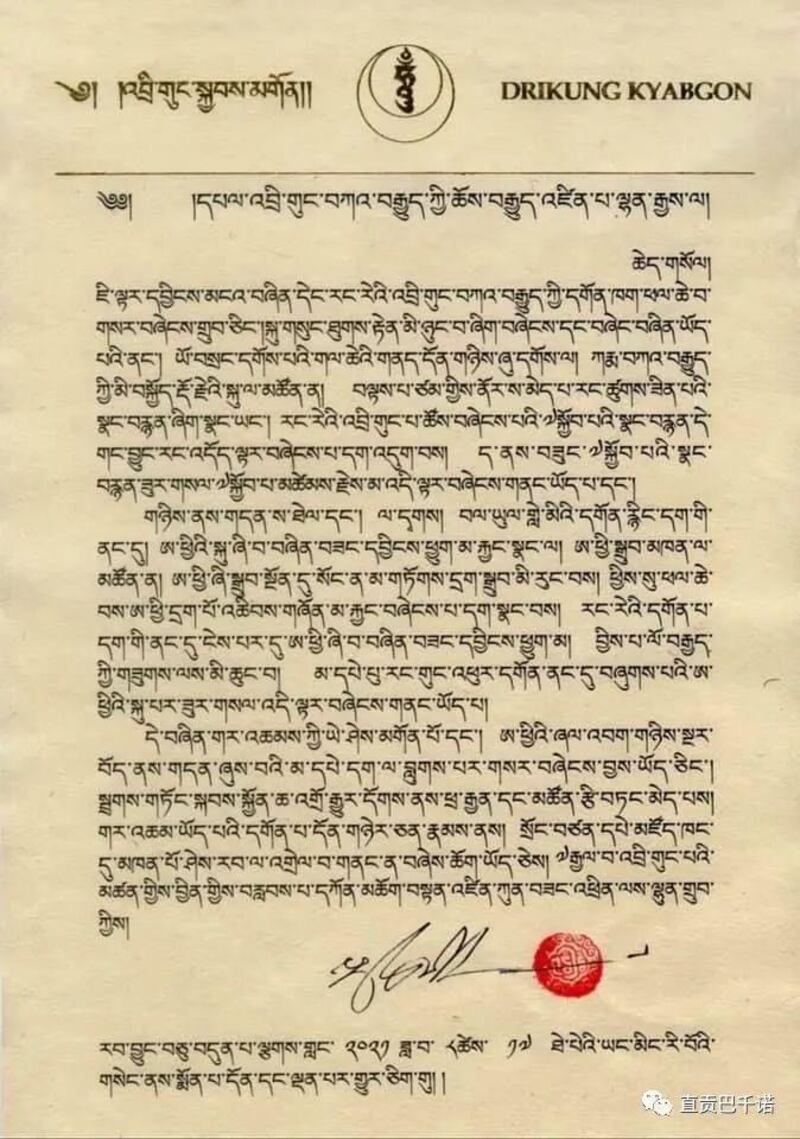 ༄༅། །འབྲི་གུང་སྐྱབས་མགོན།།
DRIKUNG KYABGON
༄༅། །དཔལ་འབྲི་གུང་བཀའ་བརྒྱུད་ཀྱི་ཆོས་བརྒྱུད་འཛིན་པ་ལྷན་རྒྱས་ལ།
ཆེད་གསོལ།
ཇི་ལྟར་དབྱིངས་མངའ་བཞིན་དེང་རང་རེའི་འབྲི་གུང་བཀའ་བརྒྱུད་ཀྱི་དགོན་ཁག་ཕལ་ཆེ་བ་
གསར་བཞེངས་གྲུབ་ཅིང་།སྐུ་གསུང་ཐུགས་རྟེན་མི་ཉུང་བ་ཞིག་བཞེངས་དང་བཞེང་བཞིན་ཡོད་
པའི་ནང་། ཡོ་བསྲང་དགོས་པའི་གལ་ཆེའི་གནད་དོན་གཉིས་ཞུ་དགོས་ལ། ཀརྨ་བཀའ་བརྒྱུད་
ཀྱི་མི་བསྐྱོད་རྡོ་རྗེའི་སྐུ་ལ་མཚོན་ན། བལྟས་པ་ཙམ་གྱིས་ནོར་ས་མེད་པ་རང་ཚུགས་ཟིན་པའི་
སྣང་བརྙན་ཞིག་སྣང་ཡང་། རང་རེའི་འབྲི་གུང་པ་ཚོས་བཞེངས་པའི་༧སྐྱོབ་པའི་སྣང་བརྙན་དེ་
གང་བྱུང་རང་འདོད་ལྟར་བཞེངས་པ་དག་འདུག་བས། ད་ནས་བཟུང་༧སྐྱོབ་པའི་སྣང་
བརྙན་ཟུར་གསལ་༧སྐྱོབ་པ་མཚེམས་རྗེས་མ་འདི་ལྟར་བཞེངས་གནང་ཡོད་པ་དང་།
གཉིས་ནས་གདན་ས་ཐེལ་དང་། ལ་དྭགས། བལ་ཡུལ་གླེ་མིའི་དགོན་རྙིང་དག་གི་
ནང་དུ། ཨ་ཕྱིའི་སྐུ་ཞི་བ་བཞིན་བཟང་དབྱིངས་ཕྱུག་མ་རྐྱང་སྣང་ལ། ཨ་ཕྱི་སྒྲུབ་མཁན་ལ་
མཚོན་ན། ཨ་ཕྱི་ཞི་སྒྲུབ་སྔོན་དུ་སོང་ན་མ་གཏོགས་དྲག་སྒྲུབ་མི་རུང་བས། ཕྱིས་སུ་ཕལ་ཆེ་
བས་ཨ་ཕྱི་དྲག་པོ་འཆིབས་གཞོན་མ་རྐྱང་བཞེངས་པ་དག་སྣང་བས། རང་རེའི་དགོན་པ་
དག་གི་ནང་དུ་ངེས་པར་དུ་ཨ་ཕྱི་ཞི་བ་བཞིན་བཟང་དབྱིངས་ཕྱུག་མ། བྱིས་པ་ལོ་བརྒྱད་
ཀྱི་གཟུགས་ལས་མི་ཆུང་བ། མ་དཔེ་པུ་རང་གུང་འཕུར་དགོན་ནང་དུ་བཞུགས་པའི་ཨ་
ཕྱིའི་སྐུ་པར་ཟུར་གསལ་འདི་ལྟར་བཞེངས་གནང་ཡོད་པ།
དེ་བཞིན་གར་འཆམས་ཀྱི་ཡེ་ཤེས་མགོན་པོ་དང་། ཨ་ཕྱིའི་ཞལ་འབག་གཉིས་སྔར་
བོད་ནས་གདན་ཞུས་བའི་མ་དཔེ་དག་ལ་བླུགས་པར་གསར་བཞེངས་བྱས་ཡོད་ཅིང་།
སྦྲགས་གཏོང་སྐབས་སྐྱོན་ཆ་འགྲོ་རྒྱུར་དོགས་ནས་ཕྲ་རྒྱན་དང་མཚོན་རྩི་བཏང་མེད་པས།
གར་འཆམ་ཡོད་པའི་དགོན་པ་དོན་གཉེར་ཅན་རྣམས་ནས། སྲོང་བཙན་དཔེ་མཛོད་ཁང་
དུ་མཁན་པོ་ཤེས་རབ་ལ་འགྲེལ་བ་གནང་ན་བཞེས་ཆོག་ཡོད་ཅེས། ༧རྒྱལ་བ་འབྲི་གུང་པའི་
མཚན་གྱིས་བྱིན་གྱིས་བརླབས་པ་དཀོན་མཆོག་བསྟན་འཛིན་ཀུན་བཟང་འཕྲིན་ལས་ལྷུན་གྲུབ་
ཀྱིས།
རབ་བྱུང་བཅུ་བདུན་པ་ལྕགས་གླང་ ༢༠༢༡ ཟླ་བ་ ༨ཚེས་ ༡༧ ཐེ་པེའི་ཡང་མིང་རི་བོའི་
གསེང་ནས་སྨོན་པ་དོན་དང་ལྡན་པར་གྱུར་ཅིག་གུ།།
直贡巴千诺